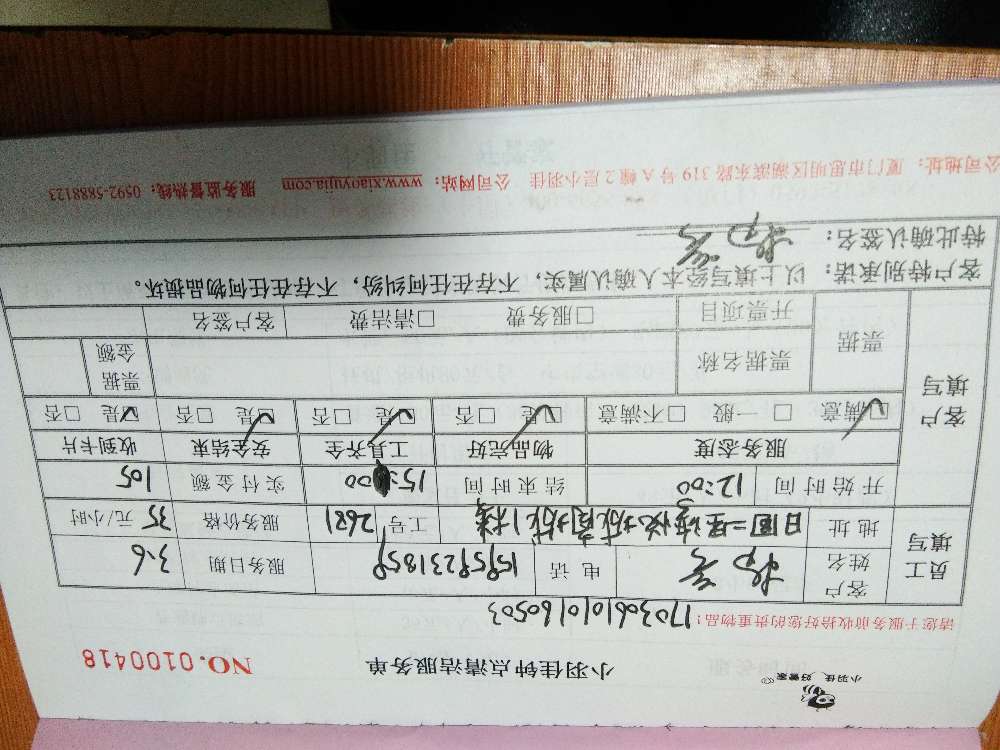 小羽佳 好管家
小羽佳钟点清洁服务单
NO.0100418
请您于服务前收拾好您的贵重物品:
170306101010160503
员工填写
客户姓名
电话
15959231859
服务日期
3.6
地址
日圆二里海悦城
1楼
工号
2681
服务价格
35 元/小时
客户填写
开始时间 12:00
结束时间 15:00
实付金额 105
服务态度 物品完好 工具齐全 安全结束 收到卡片
☑满意 □一般 □不满意 ☑是 □否 ☑是 □否 ☑是 □否 ☑是 □否
票据
票据名称
票据金额
开票项目 □服务费 □清洁费 客户签名
客户特别承诺:以上填写经本人确认属实,不存在任何纠纷,不存在任何物品损坏。
特此确认签名:
公司地址:厦门市思明区湖滨东路 319 号 A 幢 2 层小羽佳 公司网站:www.xiaoyujia.com 服务监督热线:0592-5888123